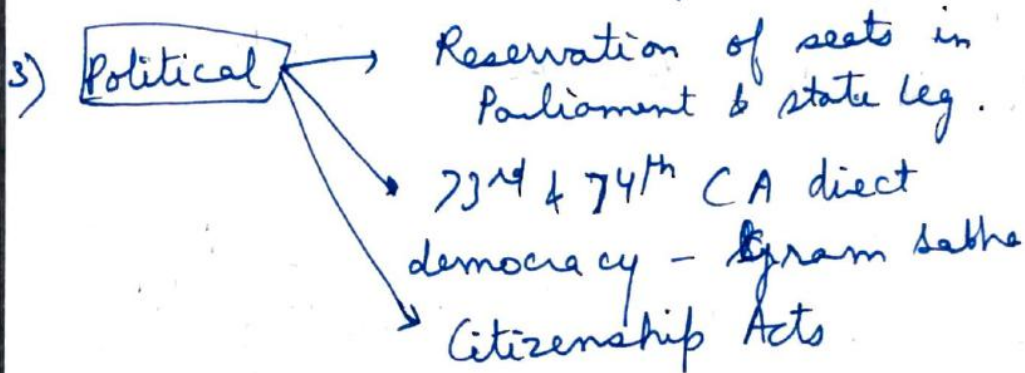 3) Political → Reservation of seats in
Parliament & state leg.
→ 73rd & 74th CA direct
democracy - gram sabha
→ Citizenship Acts